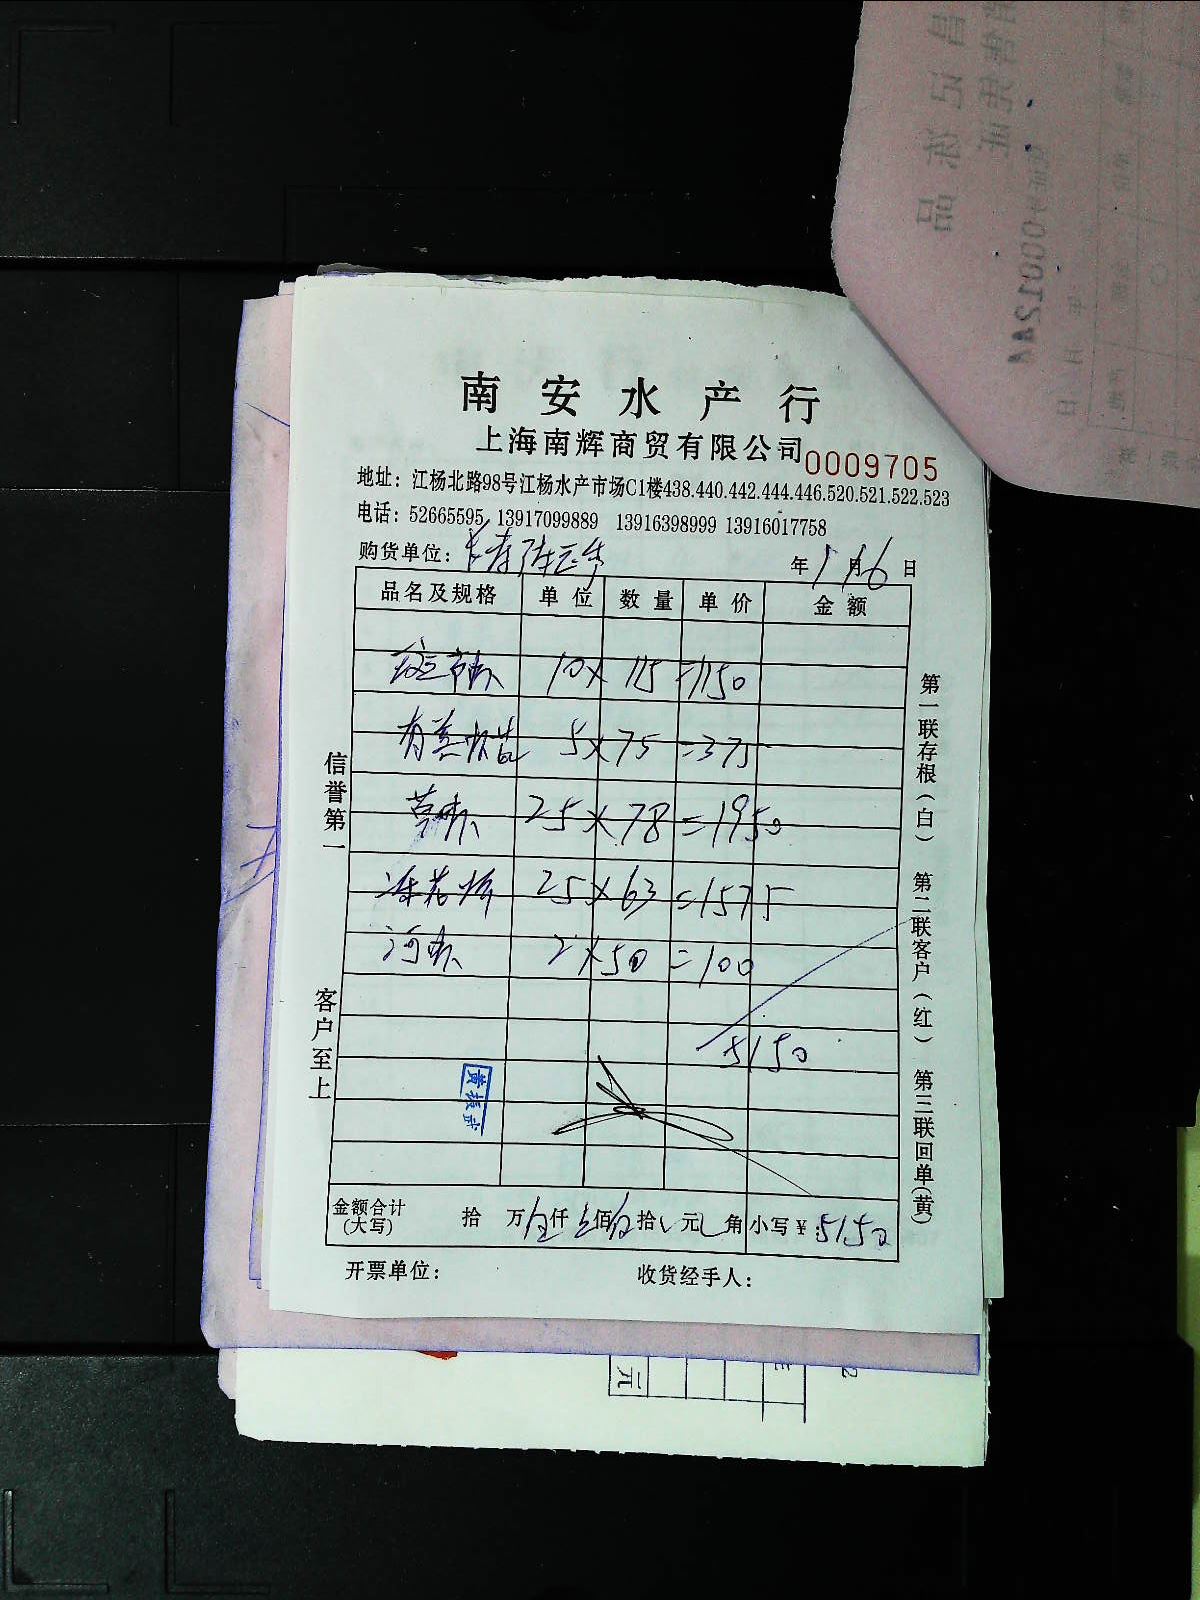 南安水产行
上海南辉商贸有限公司 0009705
地址：江杨北路98号江杨水产市场C1楼438.440.442.444.446.520.521.522.523
电话：52665595 13917099889 13916398999 13916017758
购货单位： 年 1 月 16 日
品名及规格 单位 数量 单价 金额
10×115=1150
5×75=375
25×78=1950
25×63=1575
河虾 2×50=100
5150
黄振武
金额合计(大写) 拾 万 伍仟 壹佰 伍拾 元 角 小写￥：5150
开票单位： 收货经手人：
信誉第一
客户至上
第一联存根(白) 第二联客户(红) 第三联回单(黄)
0001244
元